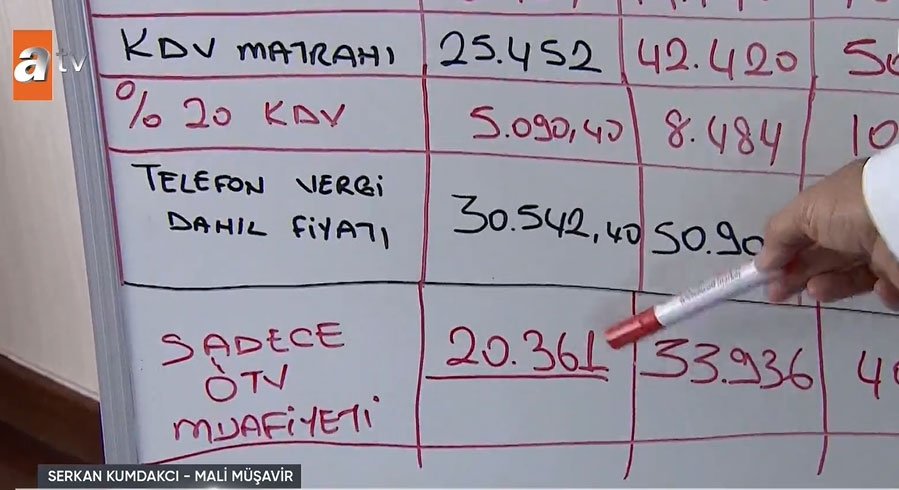 atv
KDV MATRAHI 25.452 42.420
% 20 KDV 5.090,40 8.484
TELEFON VERGİ
DAHİL FİYATI 30.542,40
SADECE
ÖTV
MUAFİYETİ 20.361 33.936
SERKAN KUMDAKCI - MALİ MÜŞAVİR